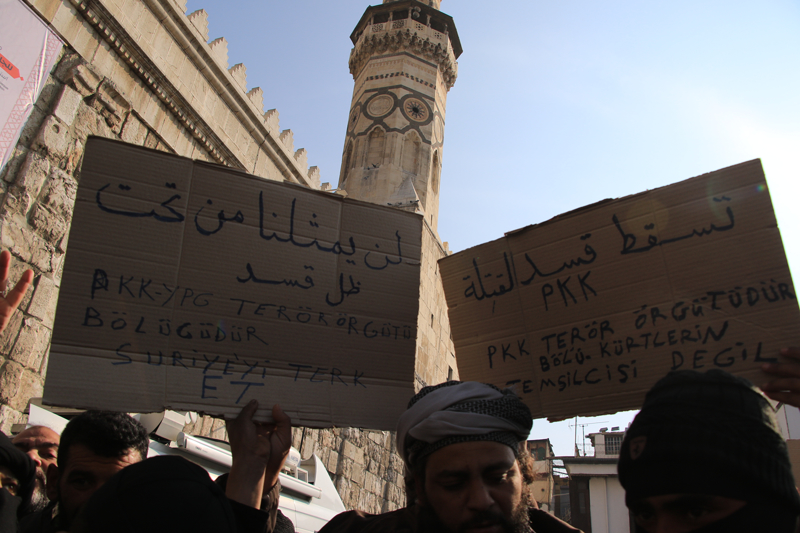 لن يمثلنا من تحت
ظل قسد
PKK-YPG TERÖR ÖRGÜTÜ
BÖLÜGÜDÜR
SURIYEYİ TERK
ET
تسقط قسد القتلة
PKK
PKK TERÖR ÖRGÜTÜDÜR
BÖLÜ. KÜRTLERİN
TEMSİLCİSİ DEĞİL